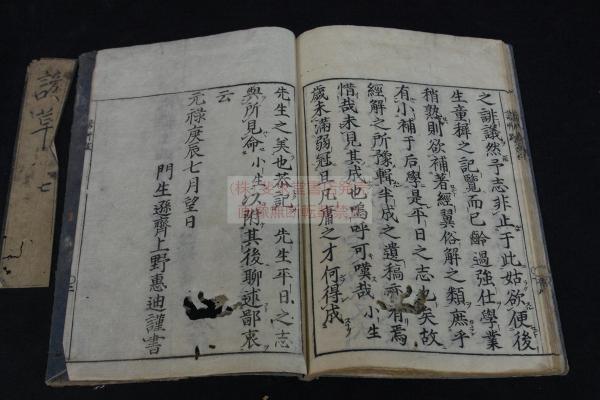 之誹議然予志非止于此姑欲便後
生童穉之記覽而已齡過強仕學業
稍熟則欲補著經翼俗解之類庶乎
有小補于后學是平日之志也矣故
經解之所豫輯半成之遺稿有焉
惜哉未見其成也嗚呼可嘆哉小生
歲未滿弱冠且凡庸之才何得成
先生之美也茲記先生平日之志
與所見命小生以附其後聊述鄙衷
云
元祿庚辰七月望日
門生遜齊上野惠迪謹書
諺草 七